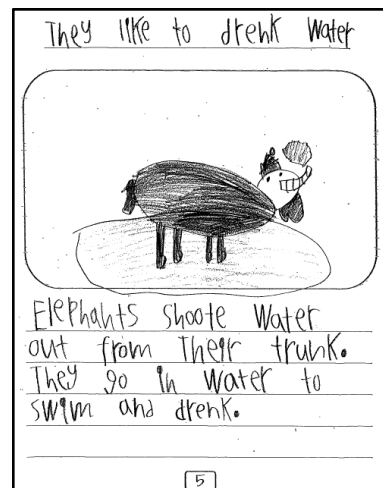 They like to drenk Water
Elephants shoote Water
out from Their trunk.
They go in water to
swim and drenk.
5